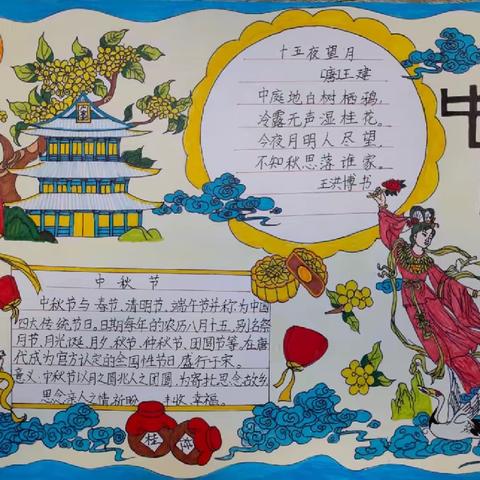 十五夜望月
唐王建
中庭地白树栖鸦，
冷露无声湿桂花。
今夜月明人尽望，
不知秋思落谁家。
王洪博书
中
中秋节
中秋节与春节、清明节、端午节并称为中国
四大传统节日。日期每年的农历八月十五，别名祭
月节、月光诞、月夕、秋节、仲秋节、团圆节等。在唐
代成为官方认定的全国性节日，盛行于宋。
意义：中秋节以月之圆兆人之团圆，为寄托思念故乡，
思念亲人之情，祈盼丰收、幸福。
桂